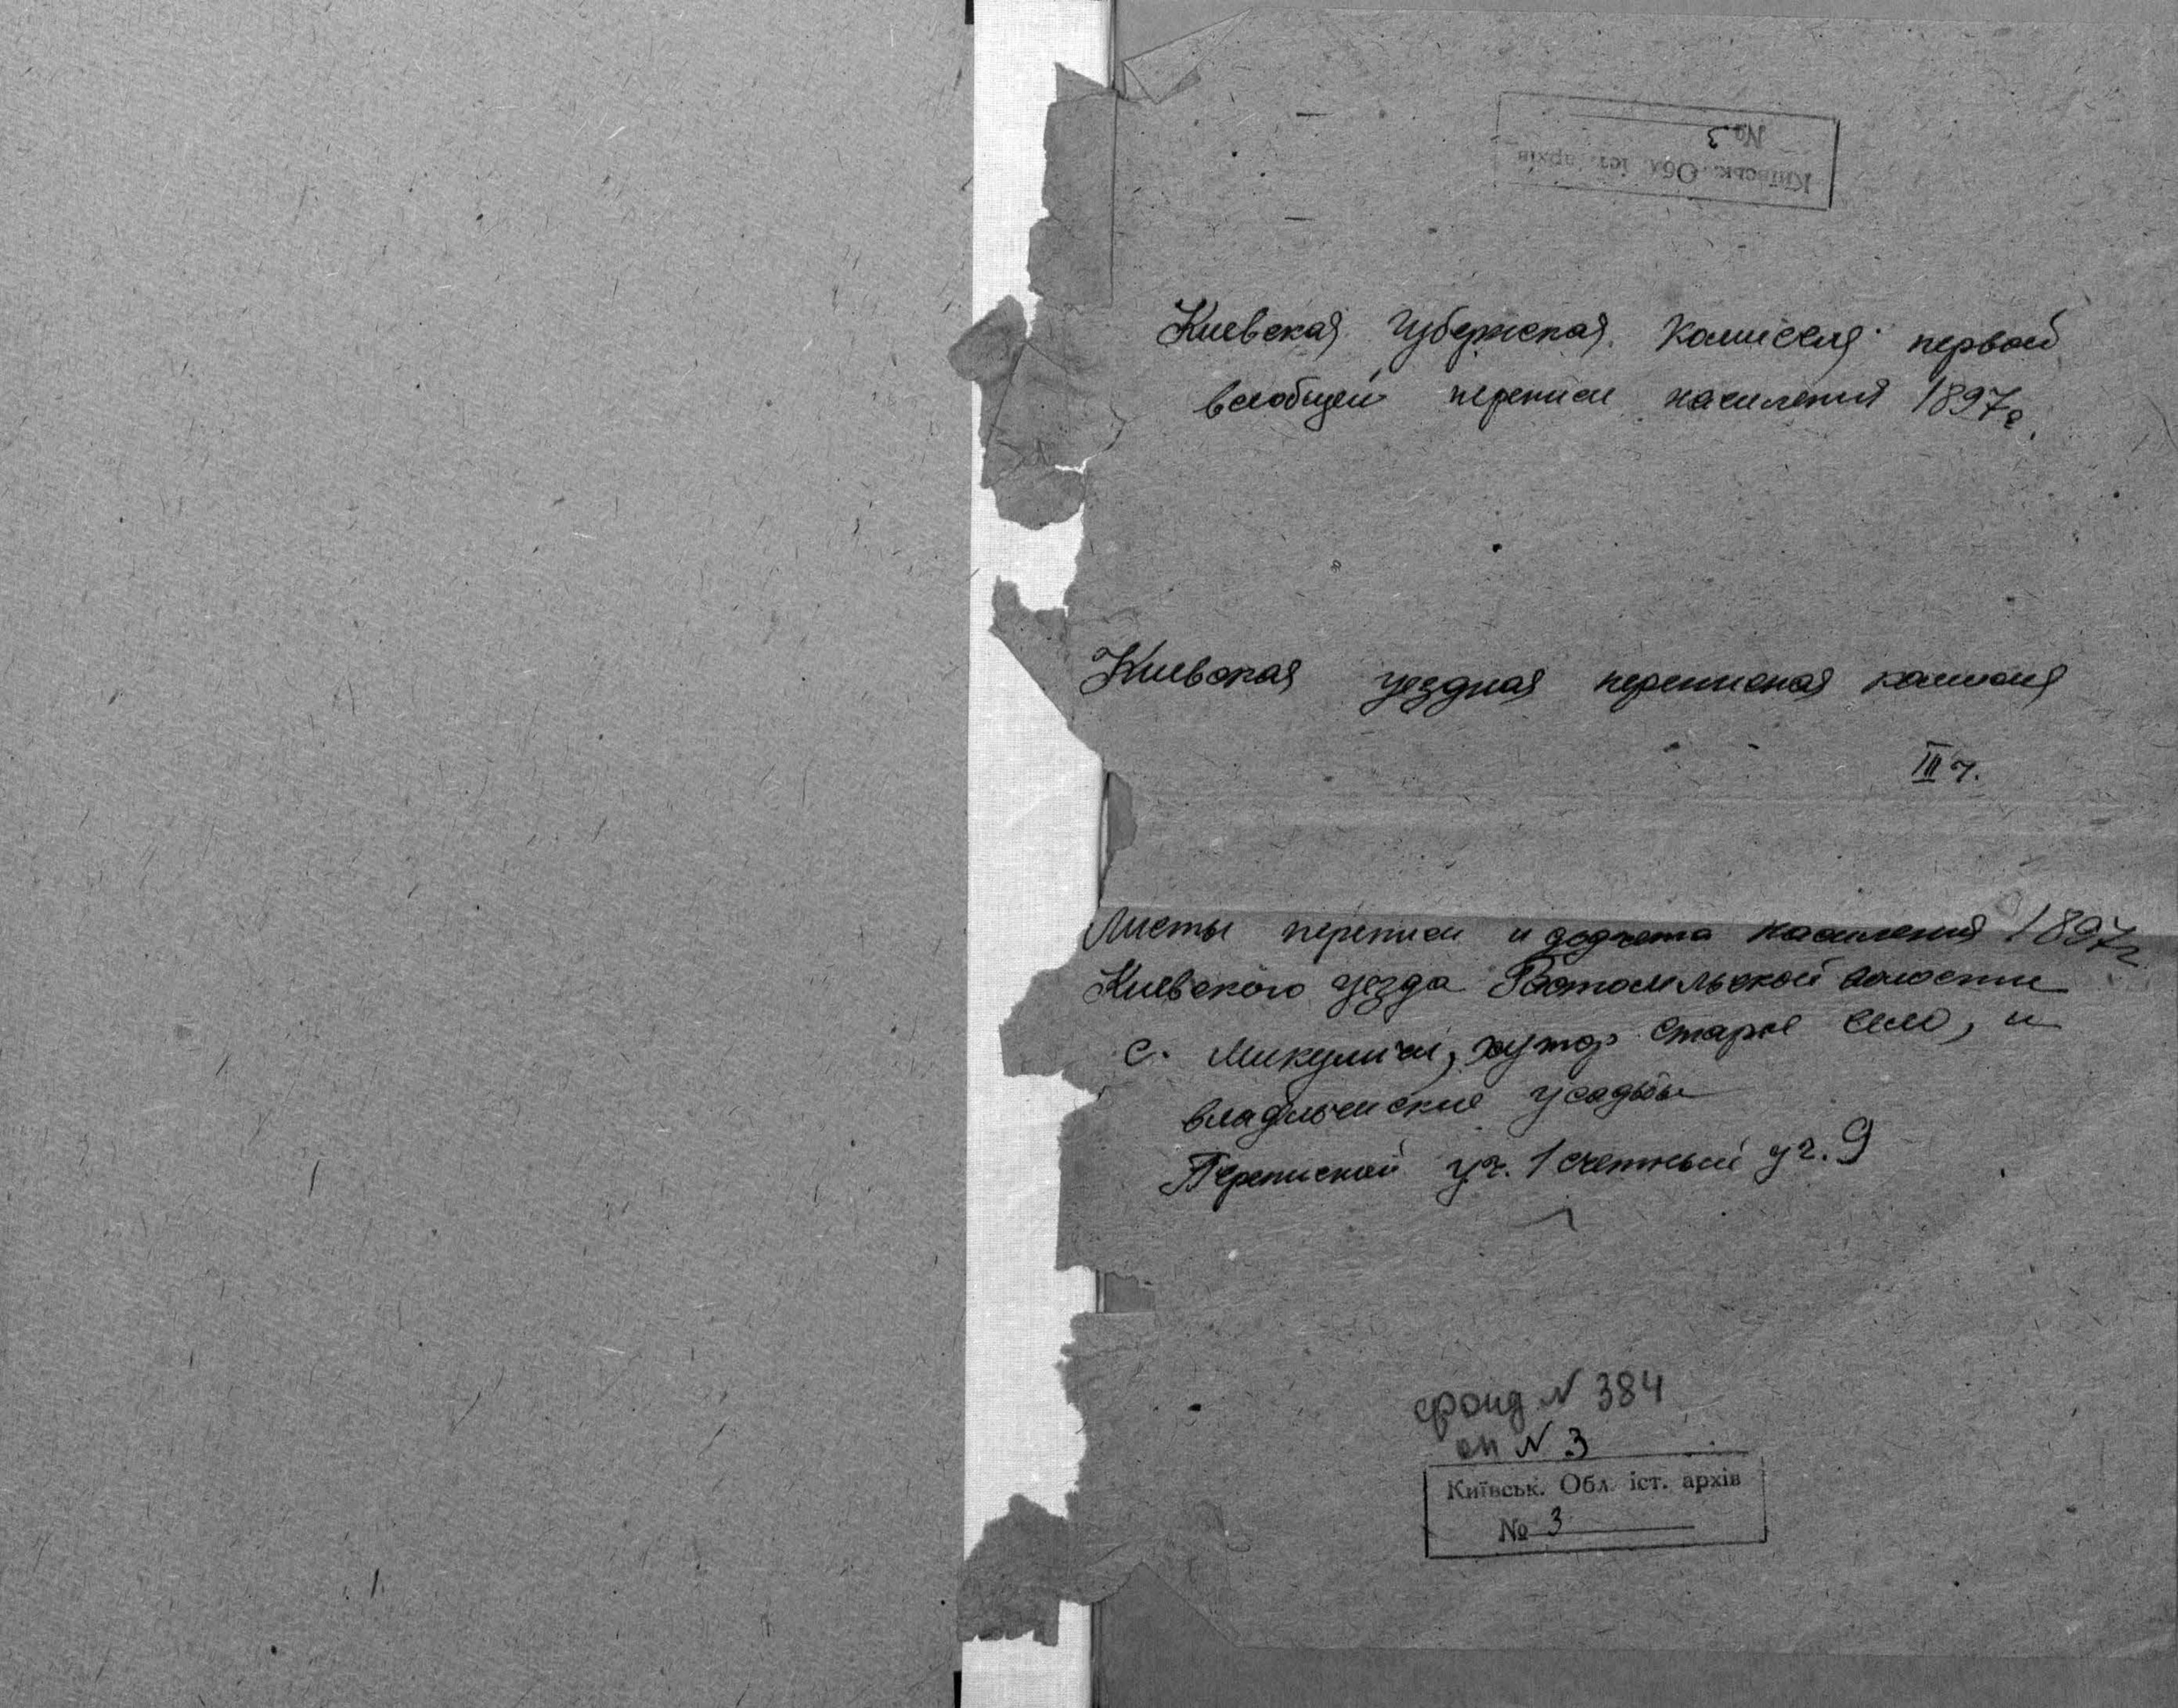 Київськ. Обл. іст. архів
№ 3
Киевская губернская комиссия первой
всеобщей переписи населения 1897 г.
Киевская уездная переписная комиссия
III ч.
Листы переписи и подчета населения 1897 г
Киевского уезда Гостомельской волости
с. Микуличи, хутор Старое село, и
владельческие усадьбы
Переписной уч. 1 счетный уч. 9
фонд N 384
оп N 3
Київськ. Обл. іст. архів
№ 3